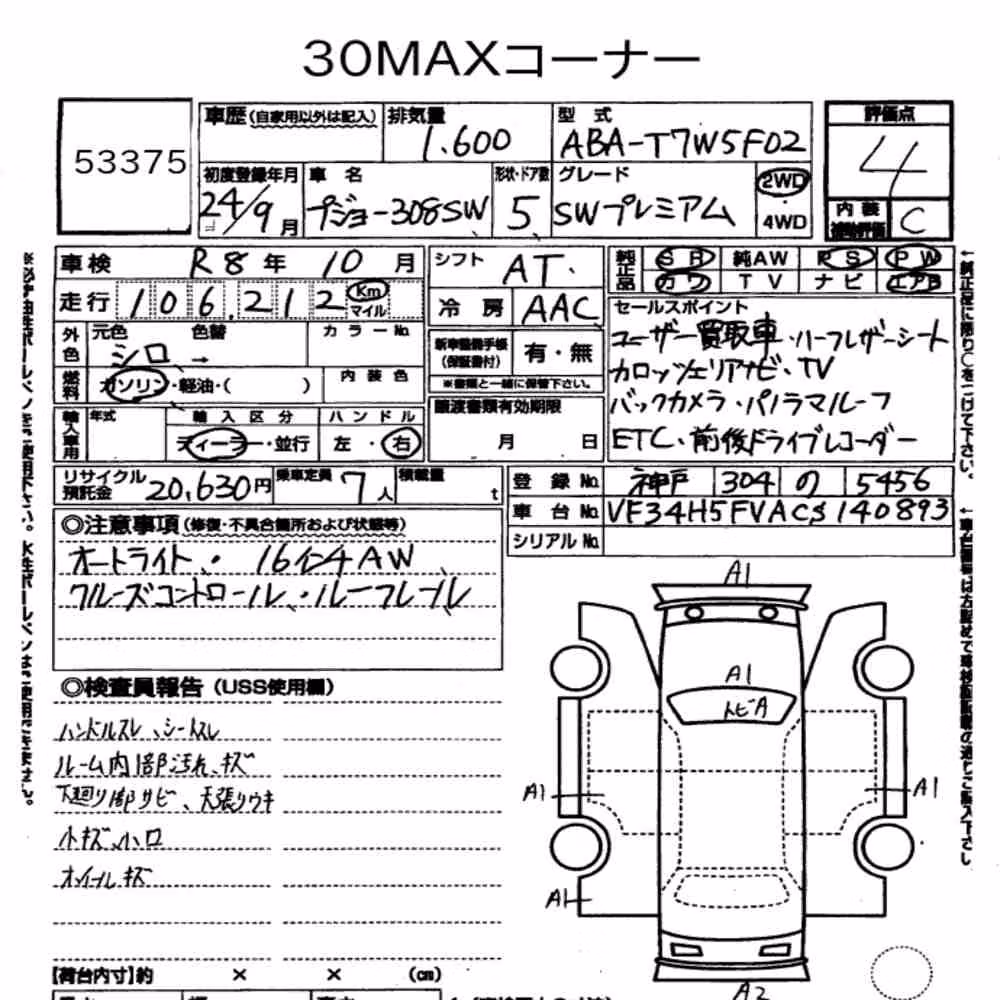 30MAXコーナー
53375
車歴(自家用以外は記入) 排気量 1.600 型式 ABA-T7W5F02
評価点 4
初度登録年月 24/9月 車名 プジョー308SW 形状・ドア数 5 グレード SWプレミアム 2WD 4WD
内装 C
車検 R8年10月 シフト AT. 純正品 SR 純AW PS PW
カワ TV ナビ エアB
走行 106,212 Km マイル 冷房 AAC
セールスポイント
外色 元色 シロ → 色替 カラーNo.
新車整備手帳(保証書付) 有・無
※書類と一緒に保管下さい。
ユーザー買取車・ハーフレザーシート
カロッツェリアナビ・TV
バックカメラ・パノラマルーフ
ETC、前後ドライブレコーダー
燃料 ガソリン・軽油・( ) 内装色
譲渡書類有効期限 月 日
輸入車用 年式 輸入区分 ディーラー・並行 ハンドル 左・右
リサイクル預託金 20,630円 乗車定員 7人 積載量 t
登録No. 神戸 304 の 5456
車台No. VF34H5FVACS140893
シリアルNo.
◎注意事項(修復・不具合箇所および状態等)
オートライト・16インチAW
クルーズコントロール・ルーフレール
◎検査員報告(USS使用欄)
ハンドルスレ、シートスレ
ルーム内部汚れ、キズ
下廻り部サビ、天張りウキ
小キズ、小凹
ホイールキズ
A1
A1
トビA
A1
A1
A1
A2
【荷台内寸】約 × × (cm)